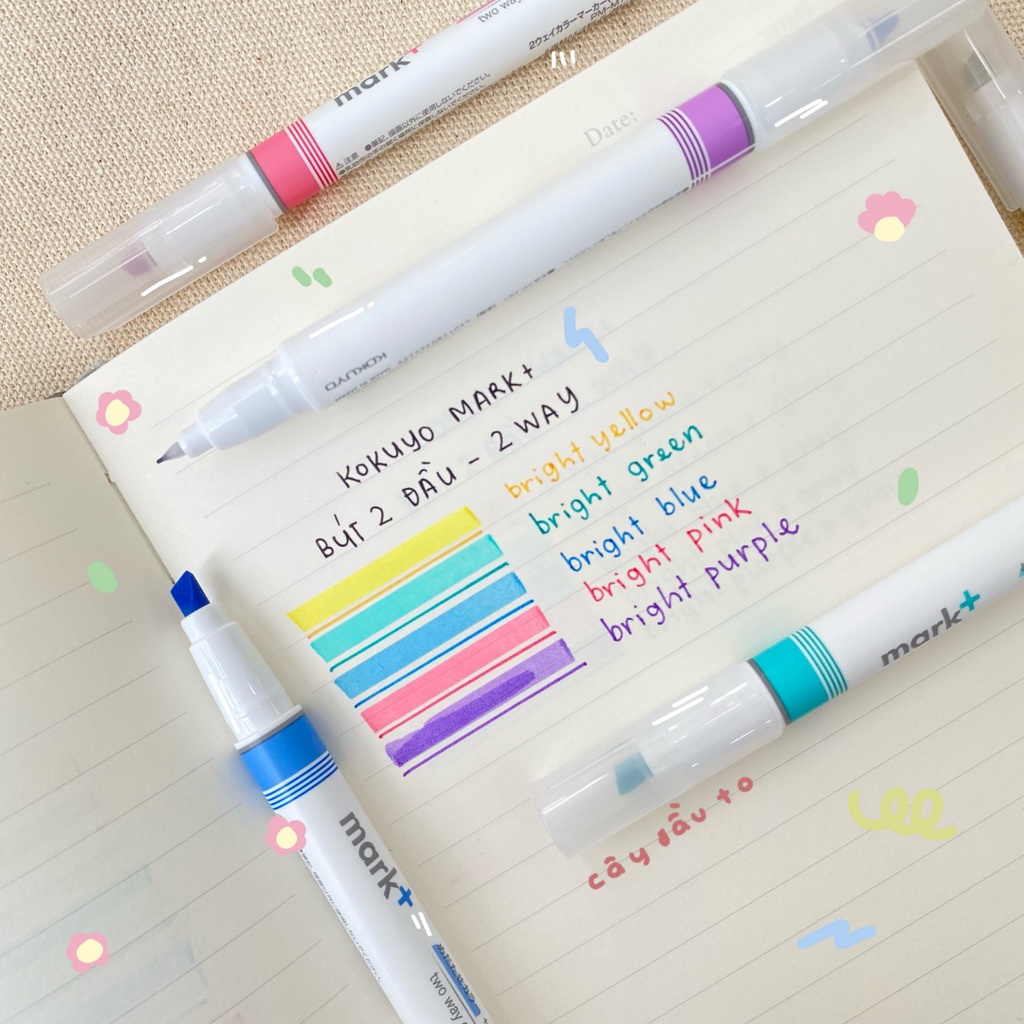 mark+
two way
2ウェイカラーマーカー
Date:
KOKUYO
KOKUYO MARK+
BÚT 2 ĐẦU - 2 WAY
bright yellow
bright green
bright blue
bright pink
bright purple
mark+
cây đầu to
mark+
two way